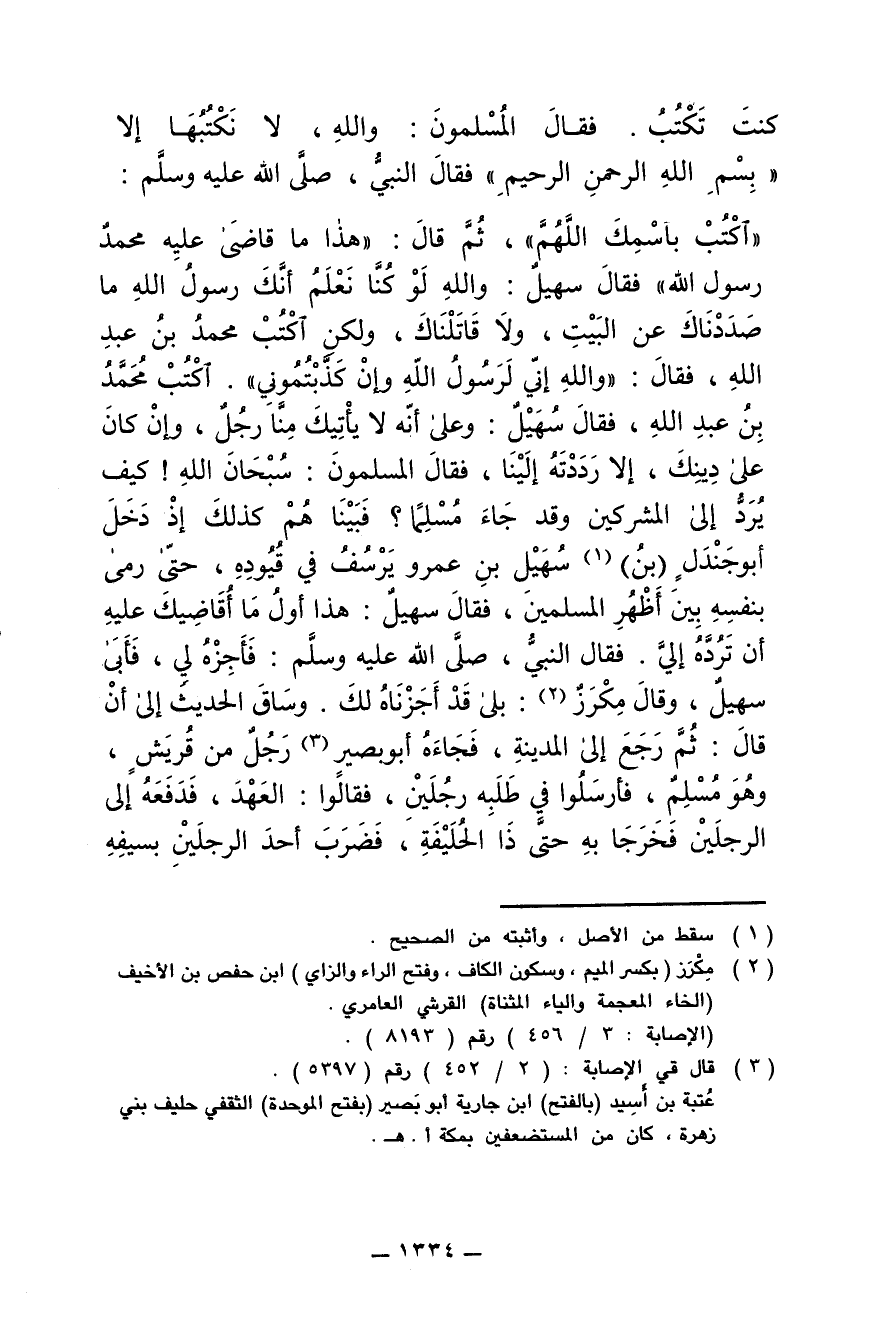 كنتَ تَكْتُبُ . فقـالَ المُسْلمونَ : واللهِ ، لا نَكْتُبُهَـا إلا
« بِسْمِ اللهِ الرحمنِ الرحيمِ » فقالَ النبيُّ ، صلَّى الله عليه وسلَّم :
«ٱكْتُبْ بٱسْمِكَ اللَّهُمَّ» ، ثُمَّ قالَ : «هذٰا ما قاضَىٰ عليه محمدٌ
رسول الله» فقالَ سهيلٌ : واللهِ لَوْ كُنَّا نَعْلَمُ أنَّكَ رسولُ اللهِ ما
صَدَدْنَاكَ عن البَيْتِ ، ولَا قَاتَلْنَاكَ ، ولكنِ ٱكْتُبْ محمدُ بنُ عبدِ
اللهِ ، فقالَ : «واللهِ إنّي لَرَسُولُ اللّهِ وإنْ كَذَّبْتُمُوني» . ٱكْتُبْ مُحَمَّدُ
بِنُ عبدِ اللهِ ، فقالَ سُهَيْلٌ : وعلىٰ أنّه لا يأْتِيكَ مِنَّا رجُلٌ ، وإنْ كانَ
علىٰ دِينِكَ ، إلا رَدَدْتَهُ إلَيْنَا ، فقالَ المسلمونَ : سُبْحَانَ اللهِ ! كيف
يُرَدُّ إلىٰ المشركين وقد جَاءَ مُسْلِمًا ؟ فَبَيْنَا هُمْ كذلكَ إذْ دَخَلَ
أبوجَنْدَلٍ (بنُ) (١) سُهَيْلِ بنِ عمرو يَرْسُفُ في قُيُودِهِ ، حتّىٰ رمىٰ
بنفسِهِ بينَ أظْهُرِ المسلمينَ ، فقالَ سهيلٌ : هذا أولُ مَا أُقَاضِيكَ عليهِ
أن تَرُدَّهُ إليَّ . فقال النبيُّ ، صلَّى الله عليه وسلَّم : فَأَجِزْهُ لِي ، فَأَبَىٰ
سهيلٌ ، وقالَ مِكْرَزٌ (٢) : بلىٰ قَدْ أَجَزْنَاهُ لكَ . وسَاقَ الحديثَ إلىٰ أنْ
قالَ : ثُمَّ رَجَعَ إلىٰ المدينةِ ، فَجَاءَهُ أبوبصيرٍ (٣) رَجُلٌ من قُريَشٍ ،
وهُوَ مُسْلِمٌ ، فأرسَلُوا في طَلَبِه رجُلَيْنِ ، فقالُوا : العَهْدَ ، فَدفَعَهُ إلى
الرجلَيْنِ فَخَرَجَا بهِ حتَّىٰ ذَا الحُلَيْفَةِ ، فَضَرَبَ أحدَ الرجلَيْنِ بسيفِهِ
( ١ ) سقط من الأصل ، وأثبته من الصحيح .
( ٢ ) مِكْرَز ( بكسر الميم ، وسكون الكاف ، وفتح الراء والزاي ) ابن حفص بن الأخيف
(الخاء المعجمة والياء المثناة) القرشي العامري .
(الإصابة : ٣ / ٤٥٦ ) رقم ( ٨١٩٣ ) .
( ٣ ) قال قي الإصابة : ( ٢ / ٤٥٢ ) رقم ( ٥٣٩٧ ) .
عُتبة بن أَسِيد (بالفتح) ابن جارية أبو بَصير (بفتح الموحدة) الثقفي حليف بني
زهرة ، كان من المستضعفين بمكة أ . هـ .
ــ ١٣٣٤ ــ